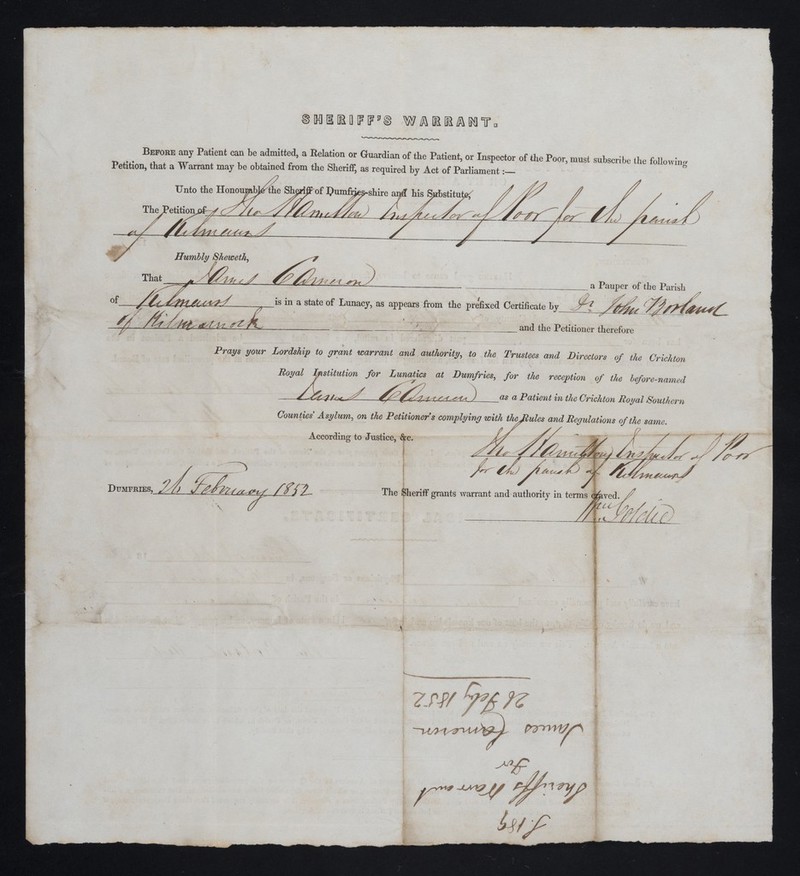 SHERIFF'S WARRANT.
BEFORE any Patient can be admitted, a Relation or Guardian of the Patient, or Inspector of the Poor, must subscribe the following
Petition, that a Warrant may be obtained from the Sheriff, as required by Act of Parliament :—
Unto the Honourable the Sheriff of Dumfries-shire and his Substitute,
The Petition of Tho Hamilton Inspector of Poor for the parish
of Kilmaurs
Humbly Sheweth,
That James Cameron a Pauper of the Parish
of Kilmaurs is in a state of Lunacy, as appears from the prefixed Certificate by Dr John Borland
of Kilmarnock and the Petitioner therefore
Prays your Lordship to grant warrant and authority, to the Trustees and Directors of the Crichton
Royal Institution for Lunatics at Dumfries, for the reception of the before-named
James Cameron as a Patient in the Crichton Royal Southern
Counties' Asylum, on the Petitioner's complying with the Rules and Regulations of the same.
According to Justice, &c.
Tho Hamilton Inspector of Poor
for the parish of Kilmaurs
DUMFRIES, 26 February 1852
The Sheriff grants warrant and authority in terms craved.
Goldie
Sheriffs Warrant
For
James Cameron
26 Feby 1852